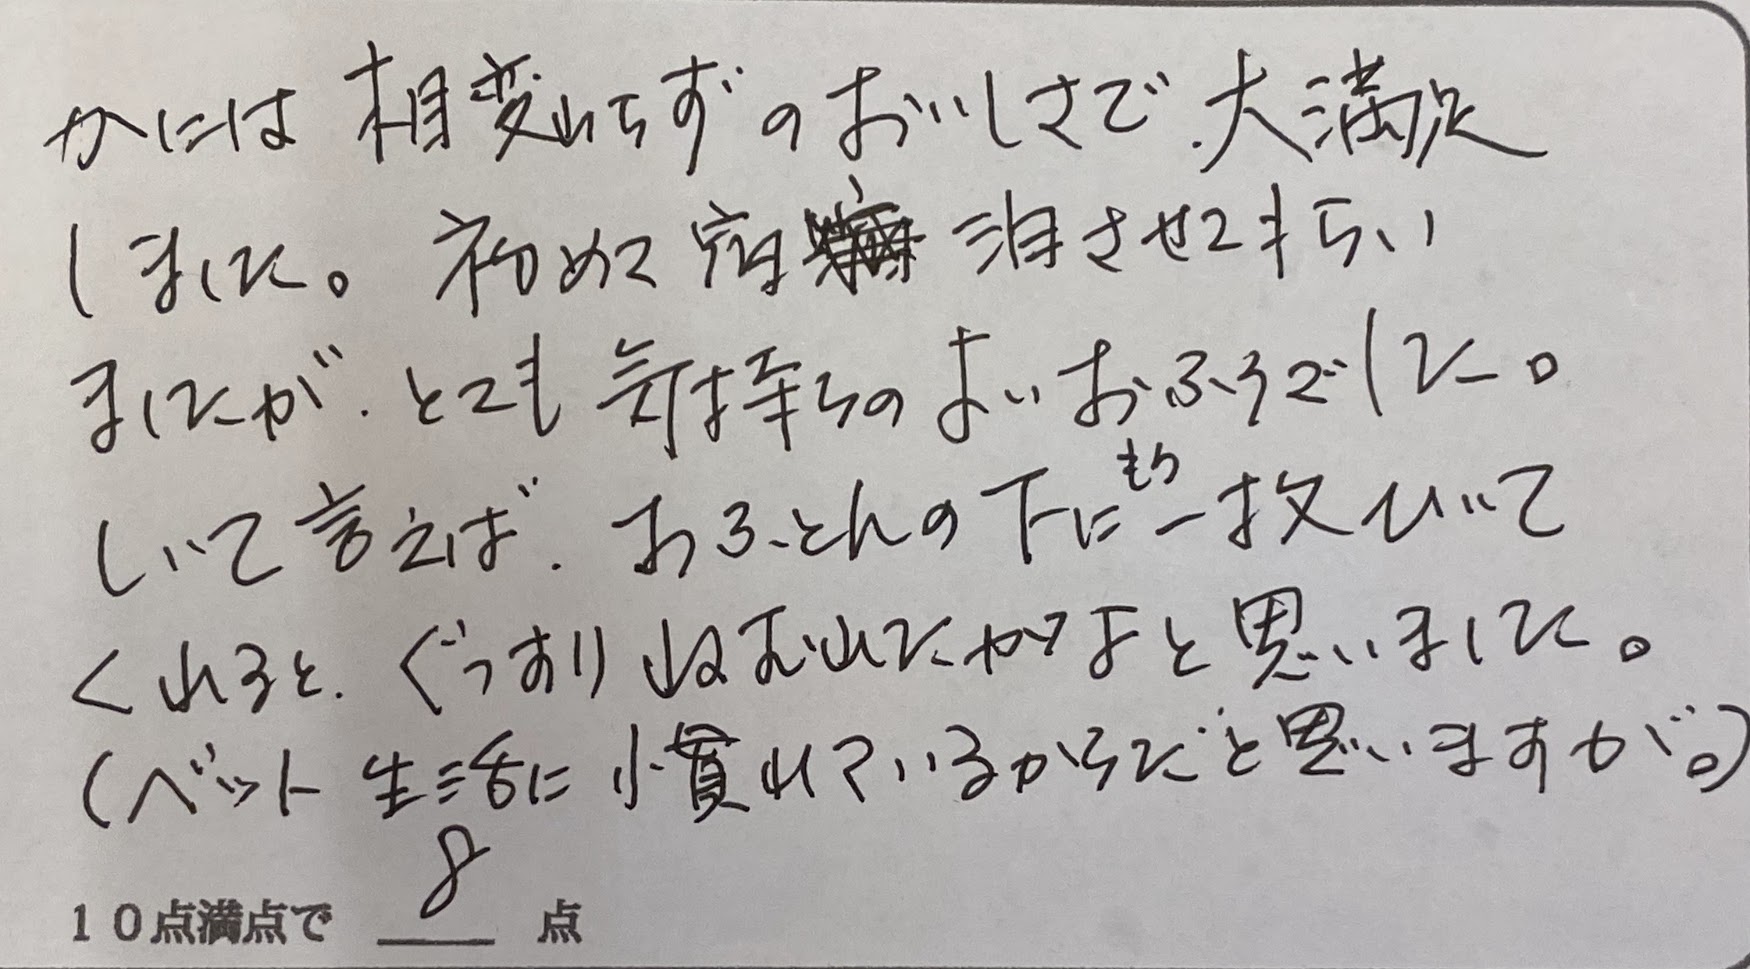 かには相変わらずのおいしさで、大満足
しました。初めて宿泊させてもらい
ましたが、とても気持ちのよいおふろでした。
しいて言えば、おふとんの下にもう一枚ひいて
くれると、ぐっすりねむれたかなと思いました。
(ベット生活に慣れているからだと思いますが。)
10点満点で 8 点